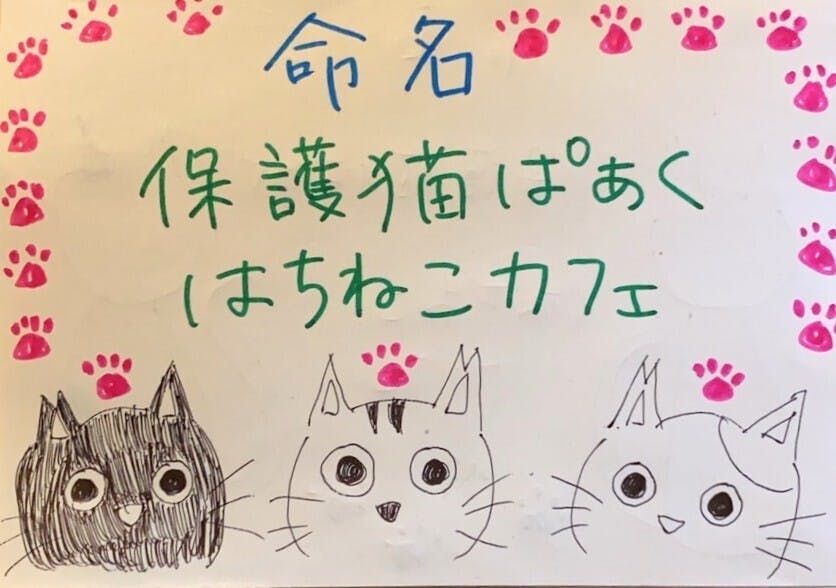 命名
保護猫ぱあく
はちねこカフェ